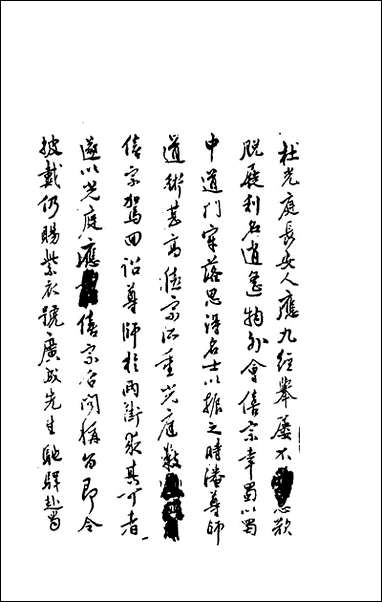 杜光庭長安人應九經舉屢不意欲
脫屣利名逍遙物外會僖宗幸蜀以蜀
中道門牢落思得名士以振之時潘尊師
道術甚高僖宗所重光庭數
僖宗駕回詔尊師於兩街求其可者
遂以光庭應僖宗召問稱旨即令
披戴仍賜紫衣號廣成先生馳驛赴蜀